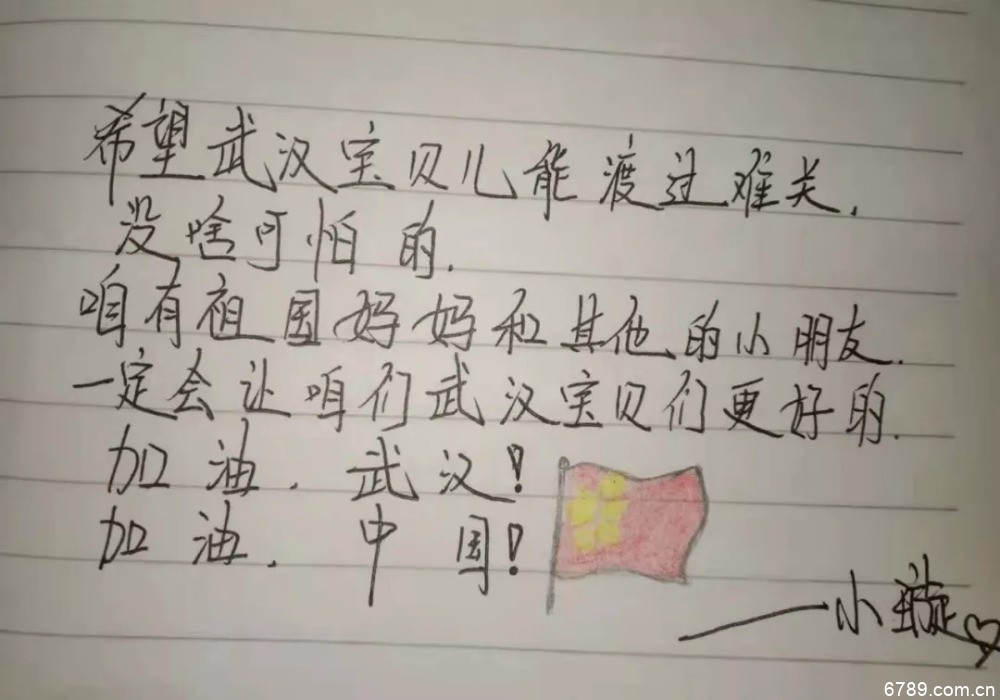 希望武汉宝贝儿能渡过难关.
没啥可怕的.
咱有祖国妈妈和其他的小朋友.
一定会让咱们武汉宝贝们更好的.
加油.武汉!
加油.中国!
——小璇
6789.com.cn